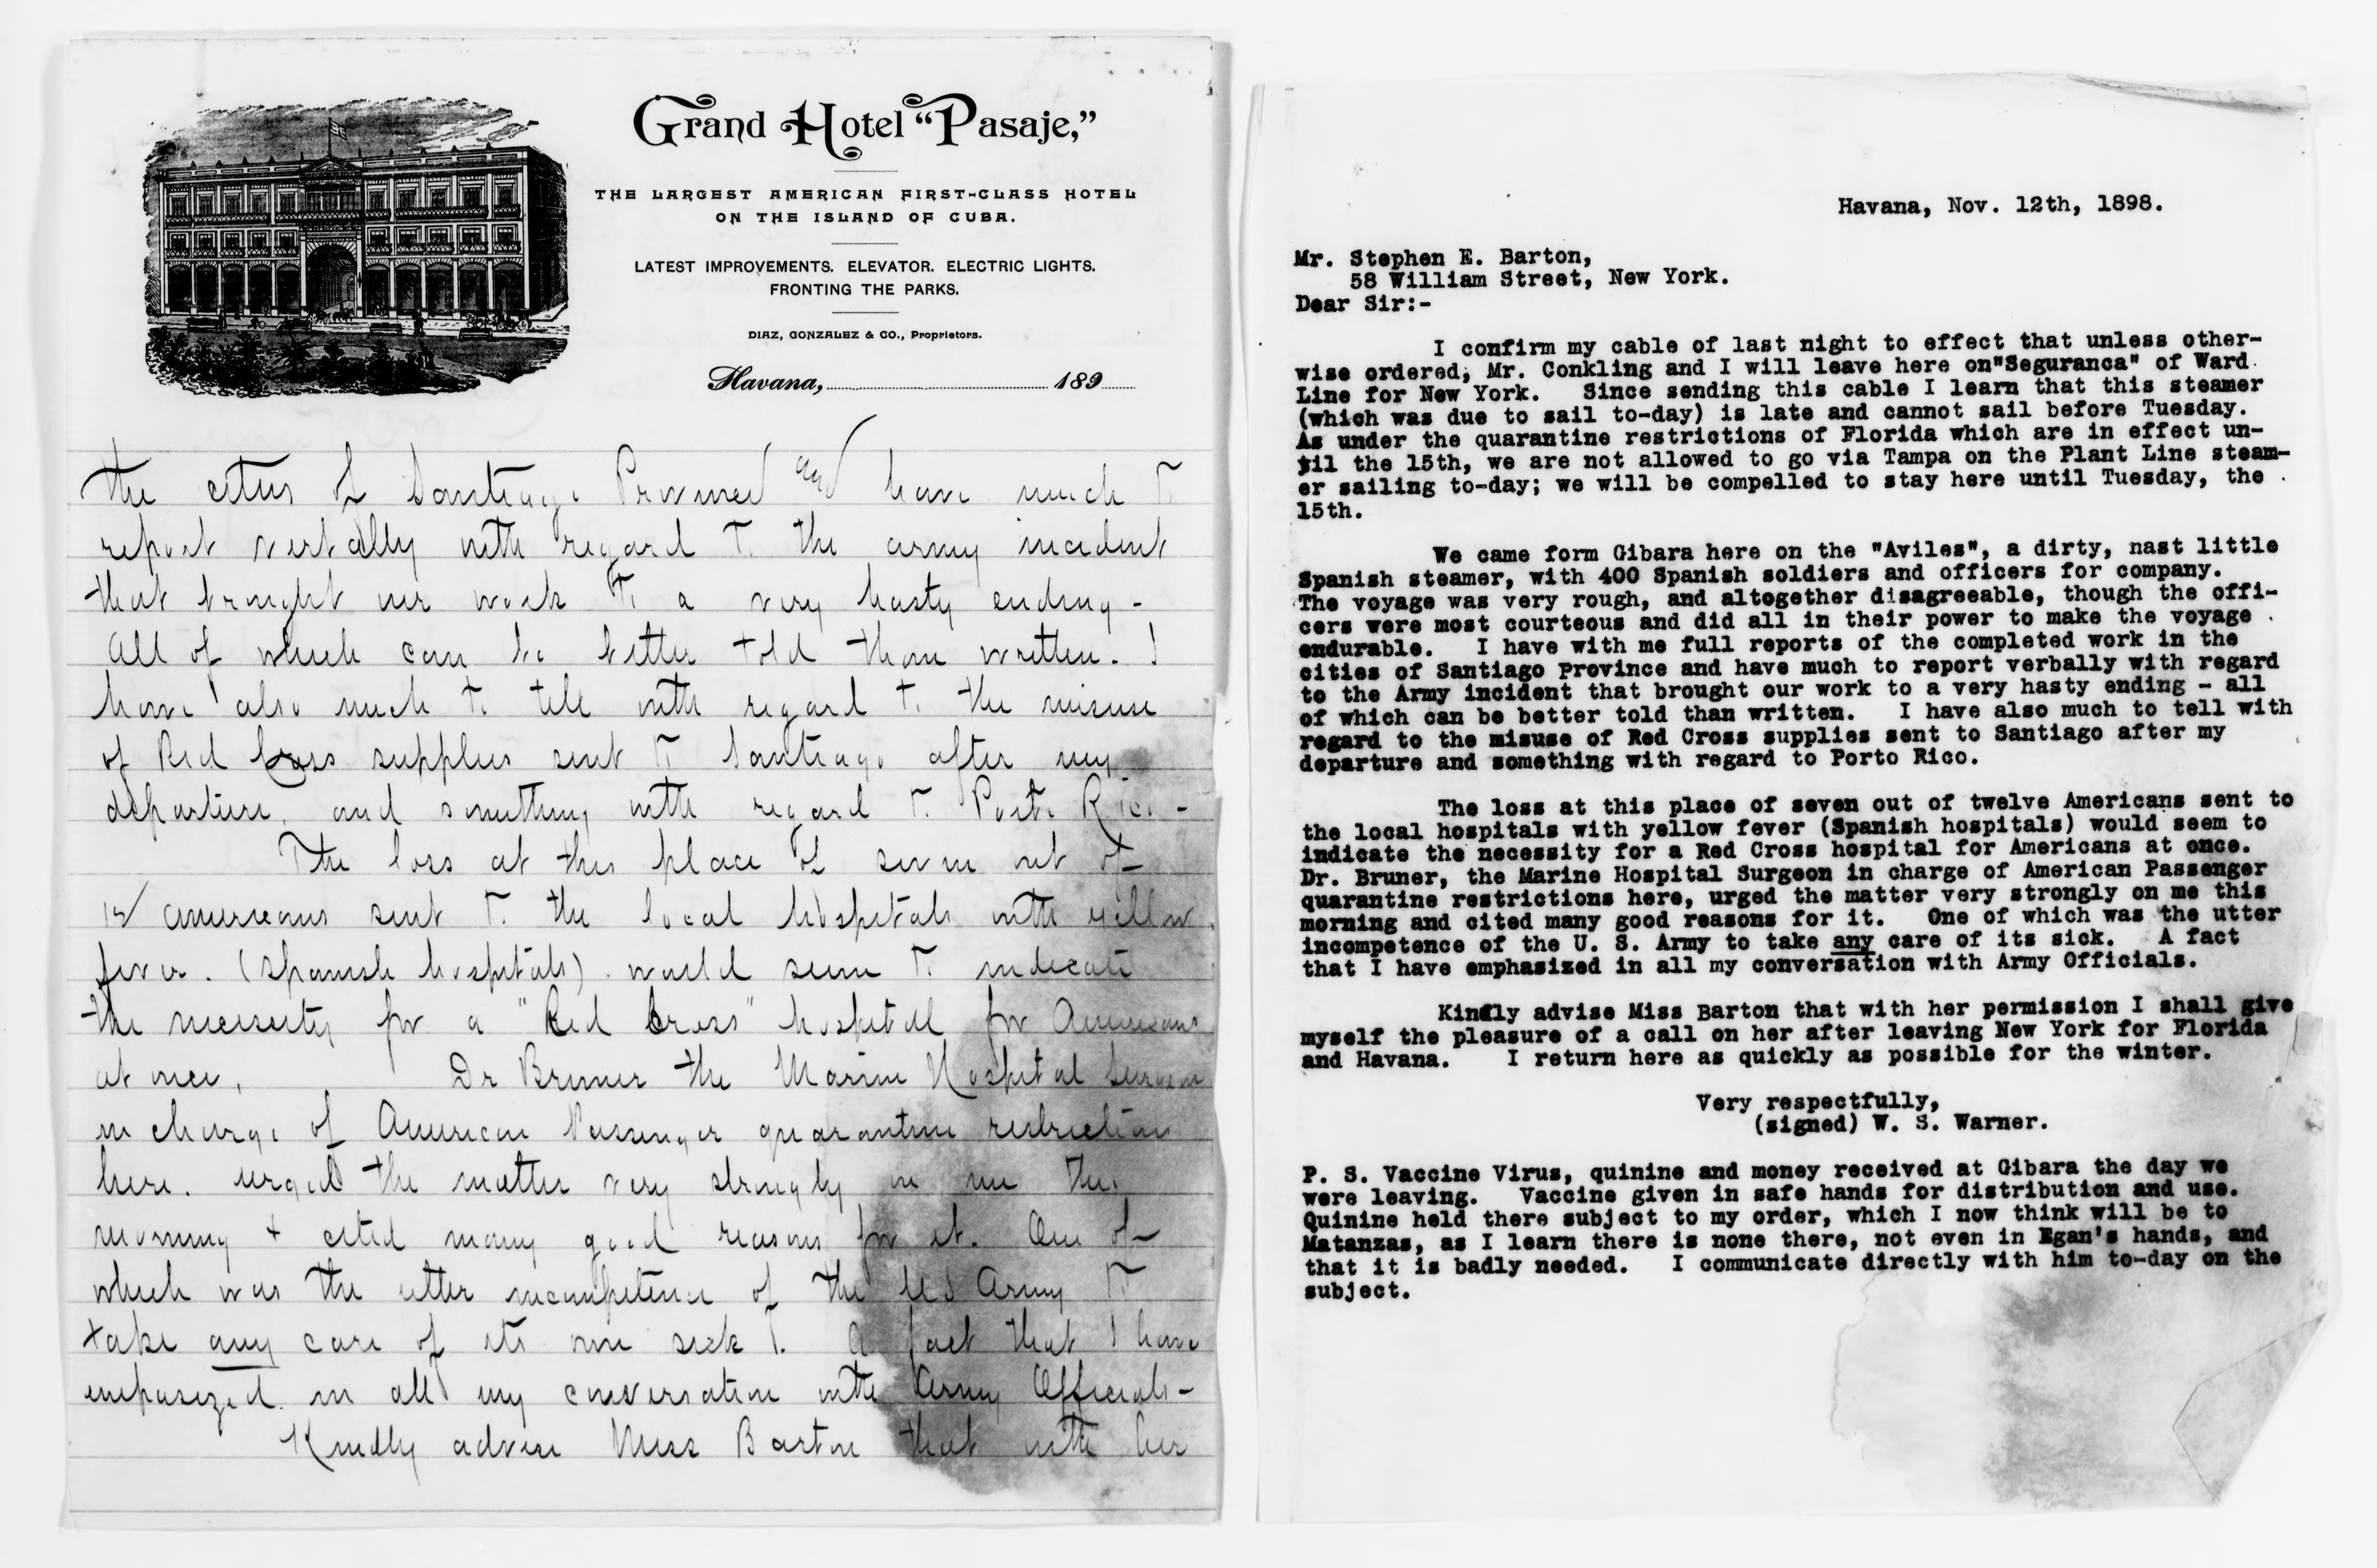 Grand Hotel “Pasaje,”
THE LARGEST AMERICAN FIRST-CLASS HOTEL
ON THE ISLAND OF CUBA.
LATEST IMPROVEMENTS. ELEVATOR. ELECTRIC LIGHTS.
FRONTING THE PARKS.
DIAZ, GONZALEZ & CO., Proprietors.
Havana, 189
the cities of Santiago Province and have much to
report verbally with regard to the army incident
that brought our work to a very hasty ending -
All of which can be better told than written. I
have also much to tell with regard to the misuse
of Red Cross supplies sent to Santiago after my
departure, and something with regard to Porto Rico -
The loss at this place of seven out of
12 Americans sent to the local hospitals with yellow
fever. (Spanish hospitals) would seem to indicate
the necessity for a "Red Cross" hospital for Americans
at once. Dr Bruner the Marine Hospital Surgeon
in charge of American Passenger quarantine restriction
here. urged the matter very strongly on me this
morning + cited many good reasons for it. One of
which was the utter incompetence of the US Army to
take any care of its own sick. A fact that I have
emphasized in all my conversation with Army Officials -
Kindly advise Miss Barton that with her
Havana, Nov. 12th, 1898.
Mr. Stephen E. Barton,
58 William Street, New York.
Dear Sir:-
I confirm my cable of last night to effect that unless other-
wise ordered, Mr. Conkling and I will leave here on"Seguranca" of Ward
Line for New York. Since sending this cable I learn that this steamer
(which was due to sail to-day) is late and cannot sail before Tuesday.
As under the quarantine restrictions of Florida which are in effect un-
til the 15th, we are not allowed to go via Tampa on the Plant Line steam-
er sailing to-day; we will be compelled to stay here until Tuesday, the
15th.
We came form Gibara here on the "Aviles", a dirty, nast little
Spanish steamer, with 400 Spanish soldiers and officers for company.
The voyage was very rough, and altogether disagreeable, though the offi-
cers were most courteous and did all in their power to make the voyage
endurable. I have with me full reports of the completed work in the
cities of Santiago Province and have much to report verbally with regard
to the Army incident that brought our work to a very hasty ending - all
of which can be better told than written. I have also much to tell with
regard to the misuse of Red Cross supplies sent to Santiago after my
departure and something with regard to Porto Rico.
The loss at this place of seven out of twelve Americans sent to
the local hospitals with yellow fever (Spanish hospitals) would seem to
indicate the necessity for a Red Cross hospital for Americans at once.
Dr. Bruner, the Marine Hospital Surgeon in charge of American Passenger
quarantine restrictions here, urged the matter very strongly on me this
morning and cited many good reasons for it. One of which was the utter
incompetence of the U. S. Army to take any care of its sick. A fact
that I have emphasized in all my conversation with Army Officials.
Kindly advise Miss Barton that with her permission I shall give
myself the pleasure of a call on her after leaving New York for Florida
and Havana. I return here as quickly as possible for the winter.
Very respectfully,
(signed) W. S. Warner.
P. S. Vaccine Virus, quinine and money received at Gibara the day we
were leaving. Vaccine given in safe hands for distribution and use.
Quinine held there subject to my order, which I now think will be to
Matanzas, as I learn there is none there, not even in Egan's hands, and
that it is badly needed. I communicate directly with him to-day on the
subject.